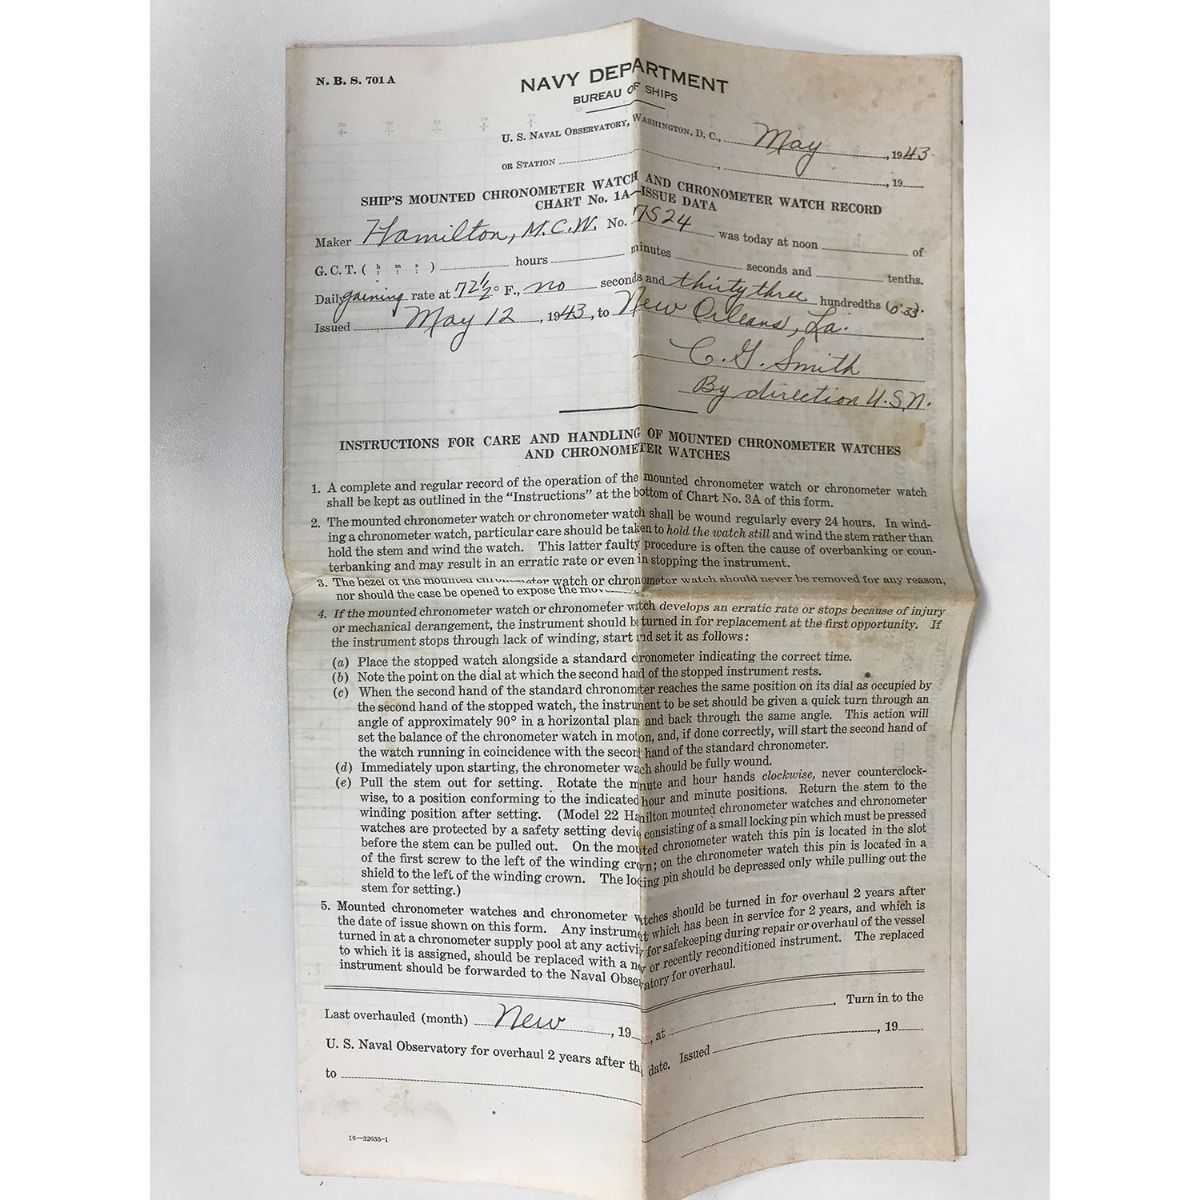 N. B. S. 701 A
NAVY DEPARTMENT
BUREAU OF SHIPS
U. S. NAVAL OBSERVATORY, WASHINGTON, D. C., May, 1943
OR STATION , 19
SHIP'S MOUNTED CHRONOMETER WATCH AND CHRONOMETER WATCH RECORD
CHART No. 1A—ISSUE DATA
Maker Hamilton, M.C.W. No. 7524 was today at noon of
G. C. T. ( h m s ) hours minutes seconds and tenths.
Daily gaining rate at 72½° F., no seconds and thirty three hundredths (0.33).
Issued May 12, 1943, to New Orleans, La.
C. G. Smith
By direction U.S.N.
INSTRUCTIONS FOR CARE AND HANDLING OF MOUNTED CHRONOMETER WATCHES
AND CHRONOMETER WATCHES
1. A complete and regular record of the operation of the mounted chronometer watch or chronometer watch
shall be kept as outlined in the "Instructions" at the bottom of Chart No. 3A of this form.
2. The mounted chronometer watch or chronometer watch shall be wound regularly every 24 hours. In wind-
ing a chronometer watch, particular care should be taken to hold the watch still and wind the stem rather than
hold the stem and wind the watch. This latter faulty procedure is often the cause of overbanking or coun-
terbanking and may result in an erratic rate or even in stopping the instrument.
3. The bezel of the mounted chronometer watch or chronometer watch should never be removed for any reason,
nor should the case be opened to expose the
4. If the mounted chronometer watch or chronometer watch develops an erratic rate or stops because of injury
or mechanical derangement, the instrument should be turned in for replacement at the first opportunity. If
the instrument stops through lack of winding, start and set it as follows:
(a) Place the stopped watch alongside a standard chronometer indicating the correct time.
(b) Note the point on the dial at which the second hand of the stopped instrument rests.
(c) When the second hand of the standard chronometer reaches the same position on its dial as occupied by
the second hand of the stopped watch, the instrument to be set should be given a quick turn through an
angle of approximately 90° in a horizontal plane and back through the same angle. This action will
set the balance of the chronometer watch in motion, and, if done correctly, will start the second hand of
the watch running in coincidence with the second hand of the standard chronometer.
(d) Immediately upon starting, the chronometer watch should be fully wound.
(e) Pull the stem out for setting. Rotate the minute and hour hands clockwise, never counterclock-
wise, to a position conforming to the indicated hour and minute positions. Return the stem to the
winding position after setting. (Model 22 Hamilton mounted chronometer watches and chronometer
watches are protected by a safety setting device consisting of a small locking pin which must be pressed
before the stem can be pulled out. On the mounted chronometer watch this pin is located in the slot
of the first screw to the left of the winding crown; on the chronometer watch this pin is located in a
shield to the left of the winding crown. The locking pin should be depressed only while pulling out the
stem for setting.)
5. Mounted chronometer watches and chronometer watches should be turned in for overhaul 2 years after
the date of issue shown on this form. Any instrument which has been in service for 2 years, and which is
turned in at a chronometer supply pool at any activity for safekeeping during repair or overhaul of the vessel
to which it is assigned, should be replaced with a new or recently reconditioned instrument. The replaced
instrument should be forwarded to the Naval Observatory for overhaul.
Last overhauled (month) New, 19 , at . Turn in to the
U. S. Naval Observatory for overhaul 2 years after this date. Issued , 19
to
16—32635-1